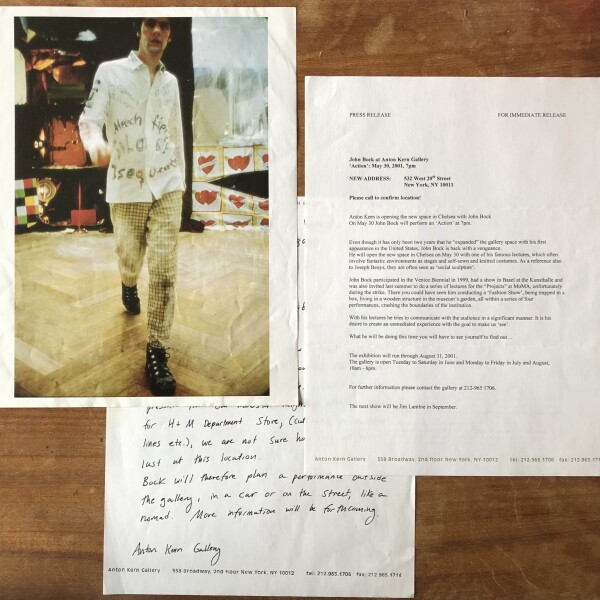 Mach
PRESS RELEASE FOR IMMEDIATE RELEASE
John Bock at Anton Kern Gallery
'Action': May 30, 2001, 7pm
NEW ADDRESS: 532 West 20th Street
New York, NY 10011
Please call to confirm location!
Anton Kern is opening the new space in Chelsea with John Bock
On May 30 John Bock will perform an 'Action' at 7pm.
Even though it has only been two years that he "expanded" the gallery space with his first
appearance in the United States, John Bock is back with a vengeance.
He will open the new space in Chelsea on May 30 with one of his famous lectures, which often
involve fantastic environments as stages and self-sewn and knitted costumes. As a reference also
to Joseph Beuys, they are often seen as 'social sculpture'.
John Bock participated in the Venice Biennial in 1999, had a show in Basel at the Kunsthalle and
was also invited last summer to do a series of lectures for the "Projects" at MoMA, unfortunately
during the strike. There you could have seen him conducting a 'Fashion Show', being trapped in a
box, living in a wooden structure in the museum's garden, all within a series of four
performances, crashing the boundaries of the institution.
With his lectures he tries to communicate with the audience in a significant manner. It is his
desire to create an unmediated experience with the goal to make us 'see'.
What he will be doing this time you will have to see yourself to find out…
The exhibition will run through August 31, 2001.
The gallery is open Tuesday to Saturday in June and Monday to Friday in July and August,
10am - 6pm.
For further information please contact the gallery at 212-965 1706.
The next show will be Jim Lambie in September.
Anton Kern Gallery 558 Broadway, 2nd floor New York, NY 10012 tel: 212.965.1706 fax: 212.965
for H+M Department Store, (cu
lines etc.), we are not sure ho
last at this location.
Bock will therefore plan a performance outside
the gallery, in a car or on the street, like a
nomad. More information will be forthcoming.
Anton Kern Gallery
Anton Kern Gallery 558 Broadway, 2nd floor New York, NY 10012 tel: 212.965.1706 fax: 212.965.1714